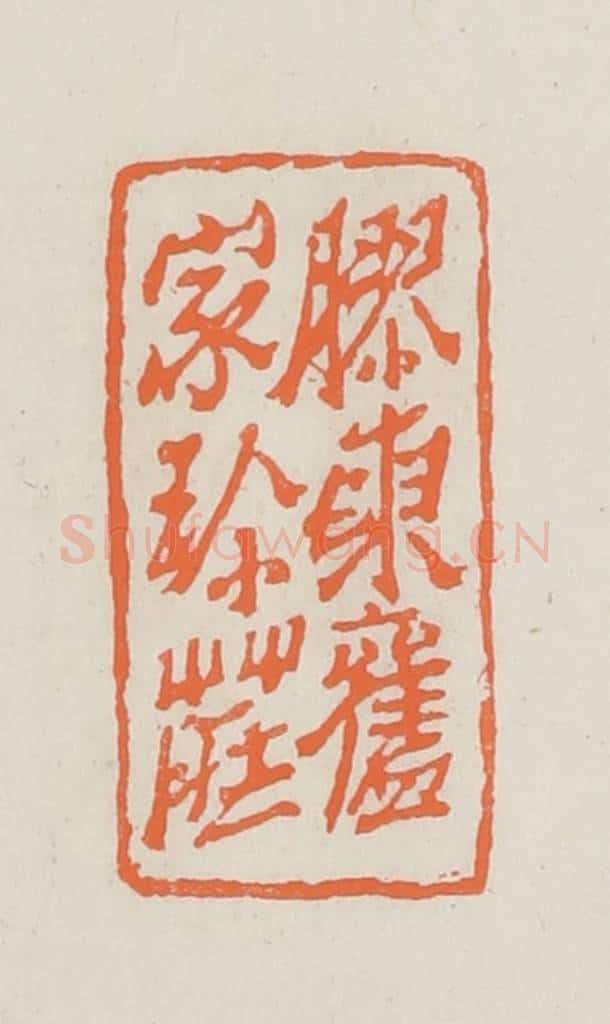 膠東舊
家珍
Shufawang.CN